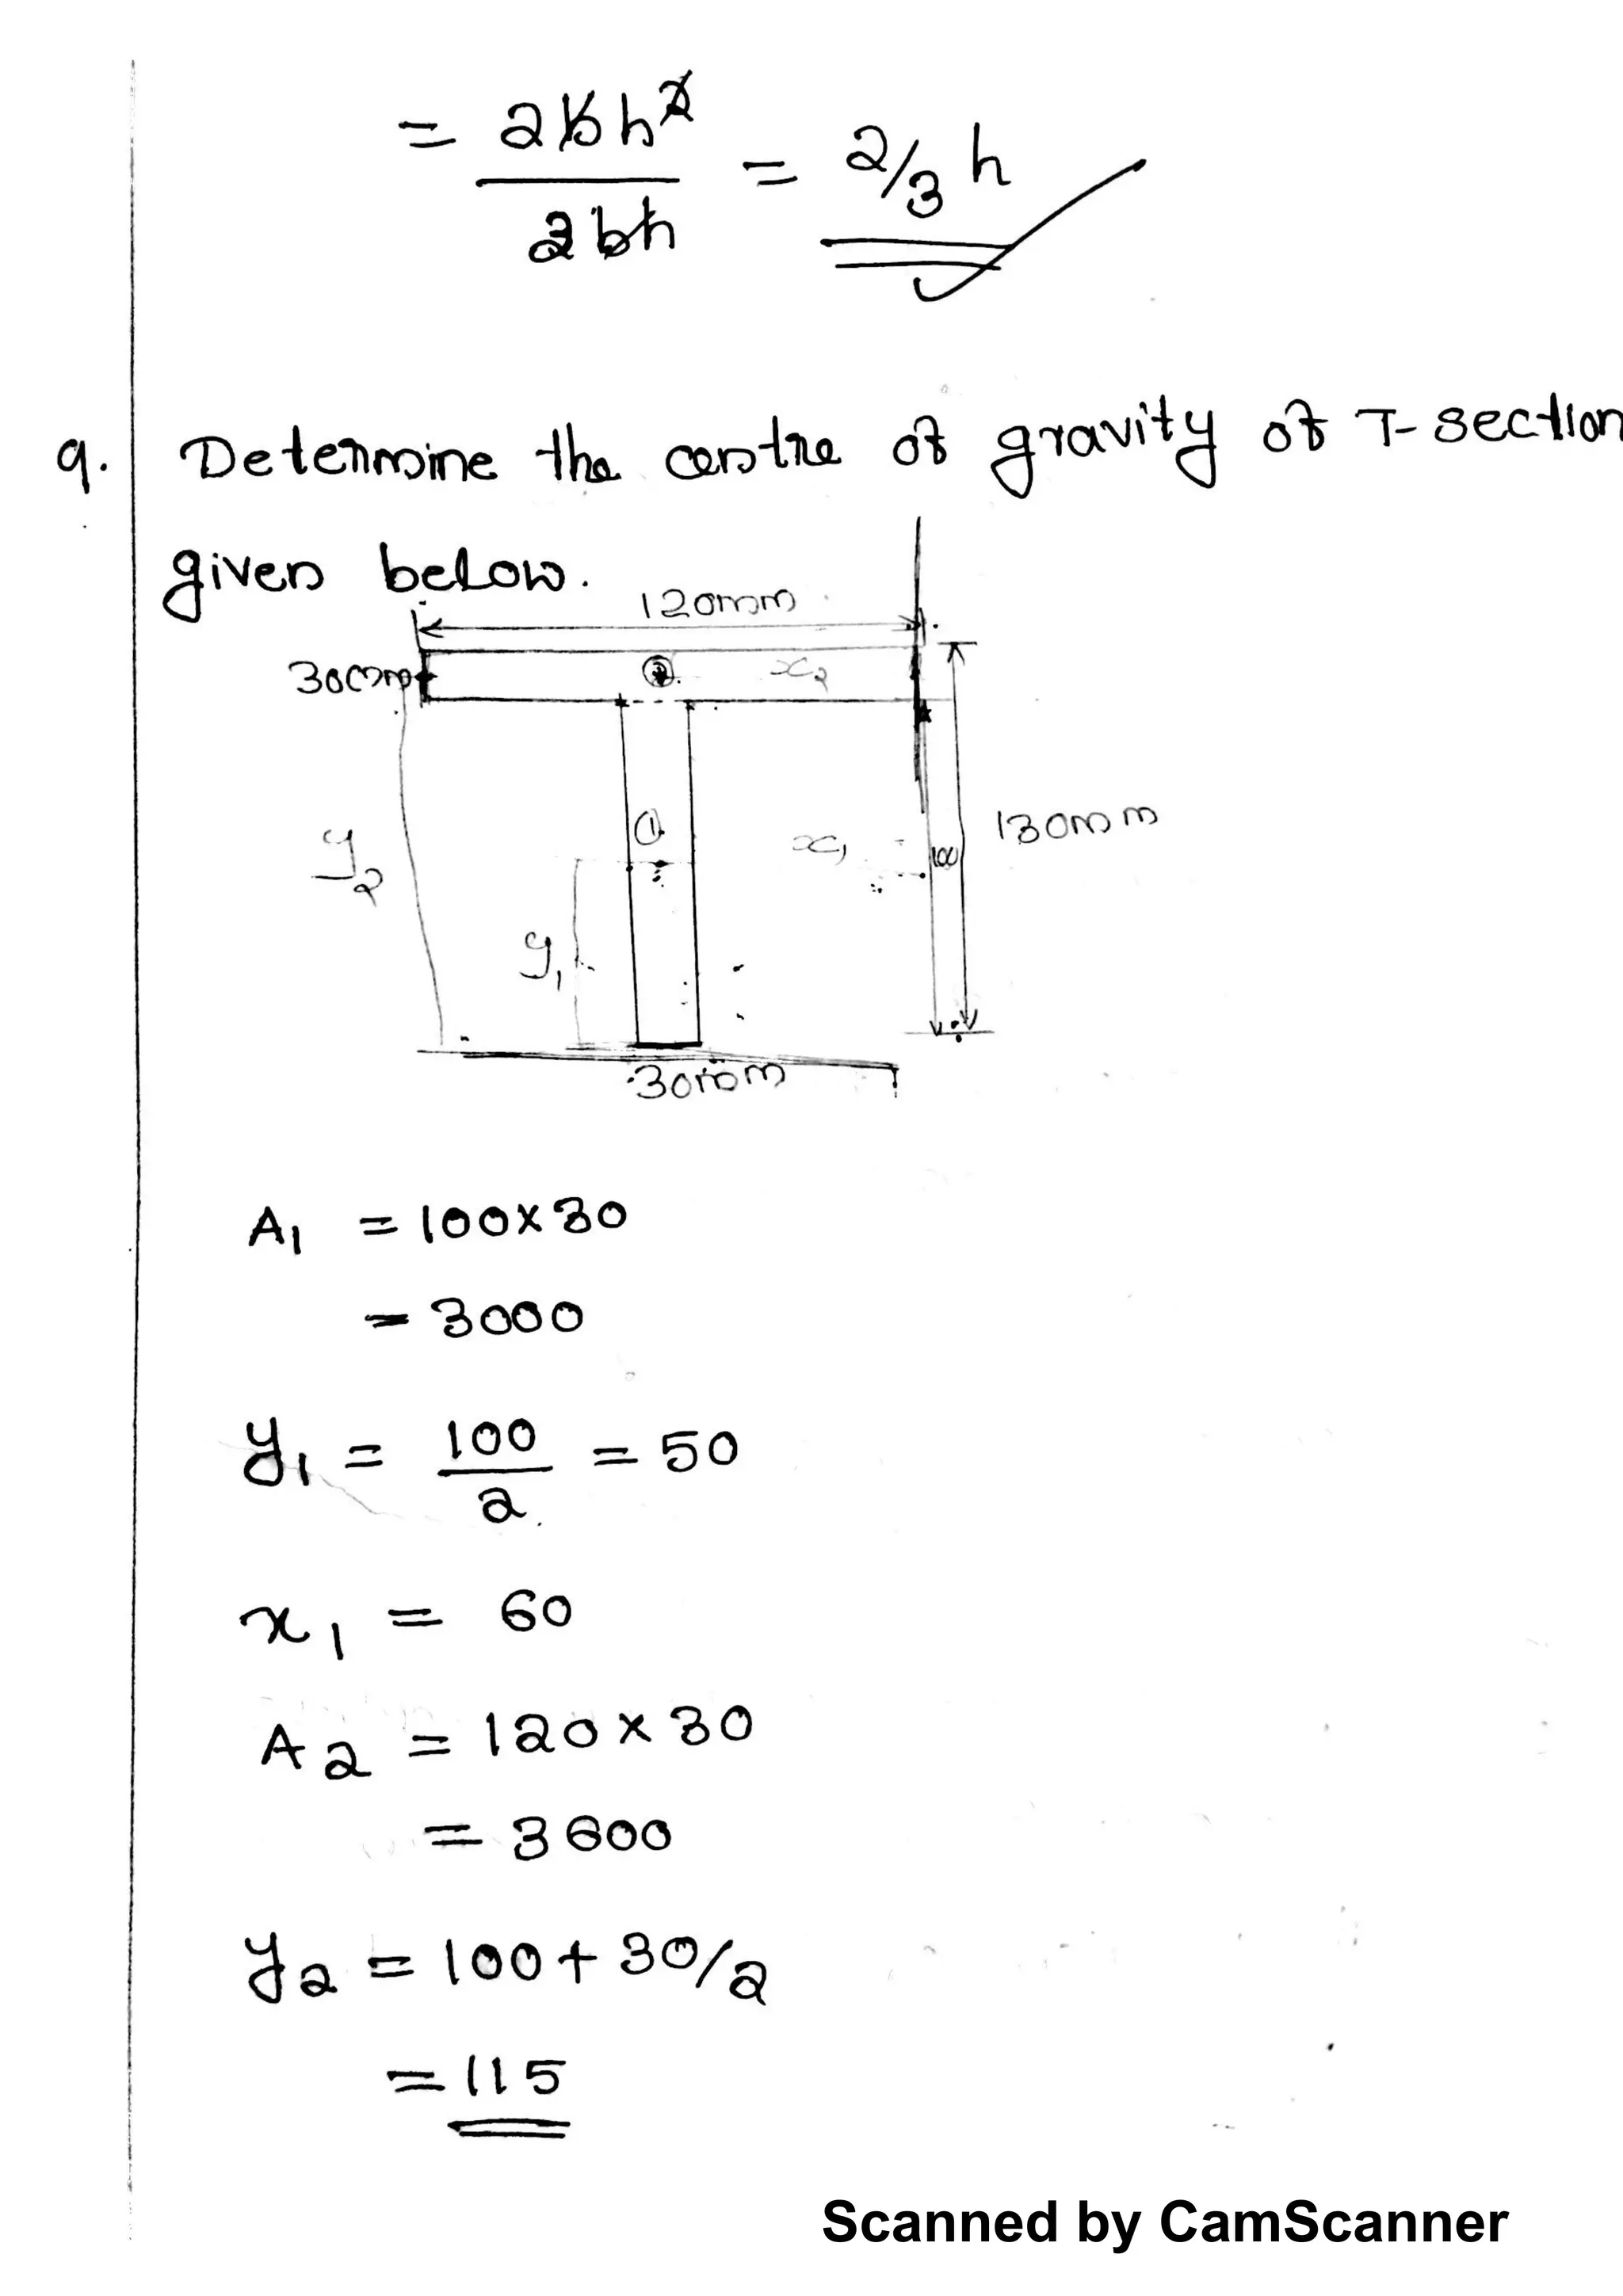 = 2bh² / 3bh = 2/3 h
9. Determine the centre of gravity of T-section
given below.
120mm
30mm
② x₂
① x₁ 100 130mm
y₂
y₁
30mm
A₁ = 100×30
= 3000
y₁ = 100/2 = 50
x₁ = 60
A₂ = 120×30
= 3600
y₂ = 100+30/2
= 115
Scanned by CamScanner